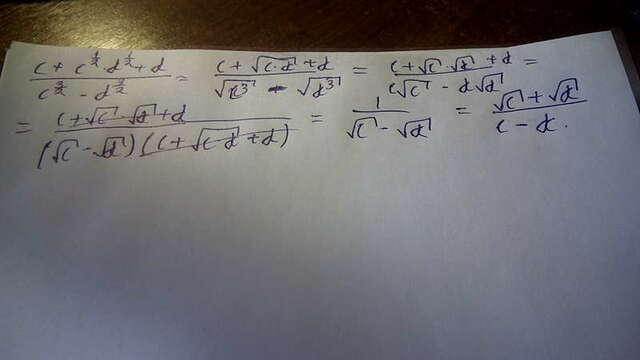 (c + c^{1/2}·d^{1/2} + d)/(c^{3/2} - d^{3/2}) = (c + √(c·d) + d)/(√(c^3) - √(d^3)) = (c + √c·√d + d)/(c√c - d√d) =
= (c + √c·√d + d)/((√c - √d)(c + √(c·d) + d)) = 1/(√c - √d) = (√c + √d)/(c - d).